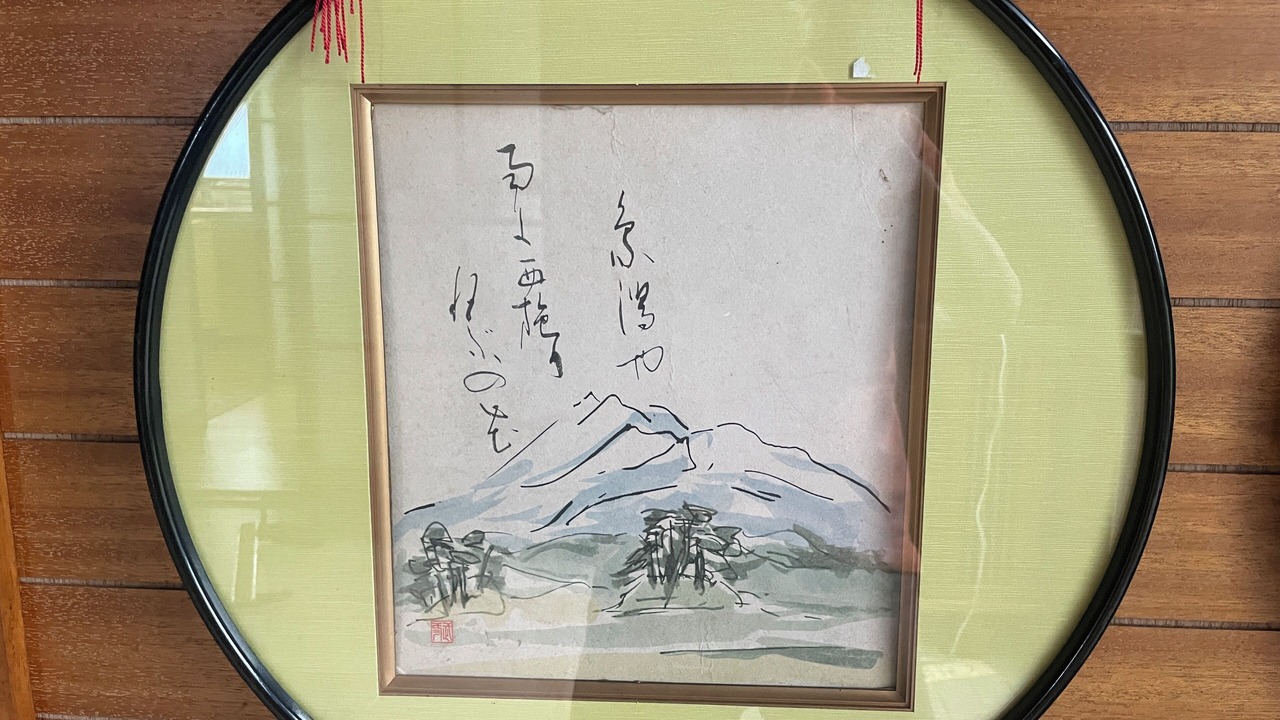 象潟や
雨に西施が
ねぶの花